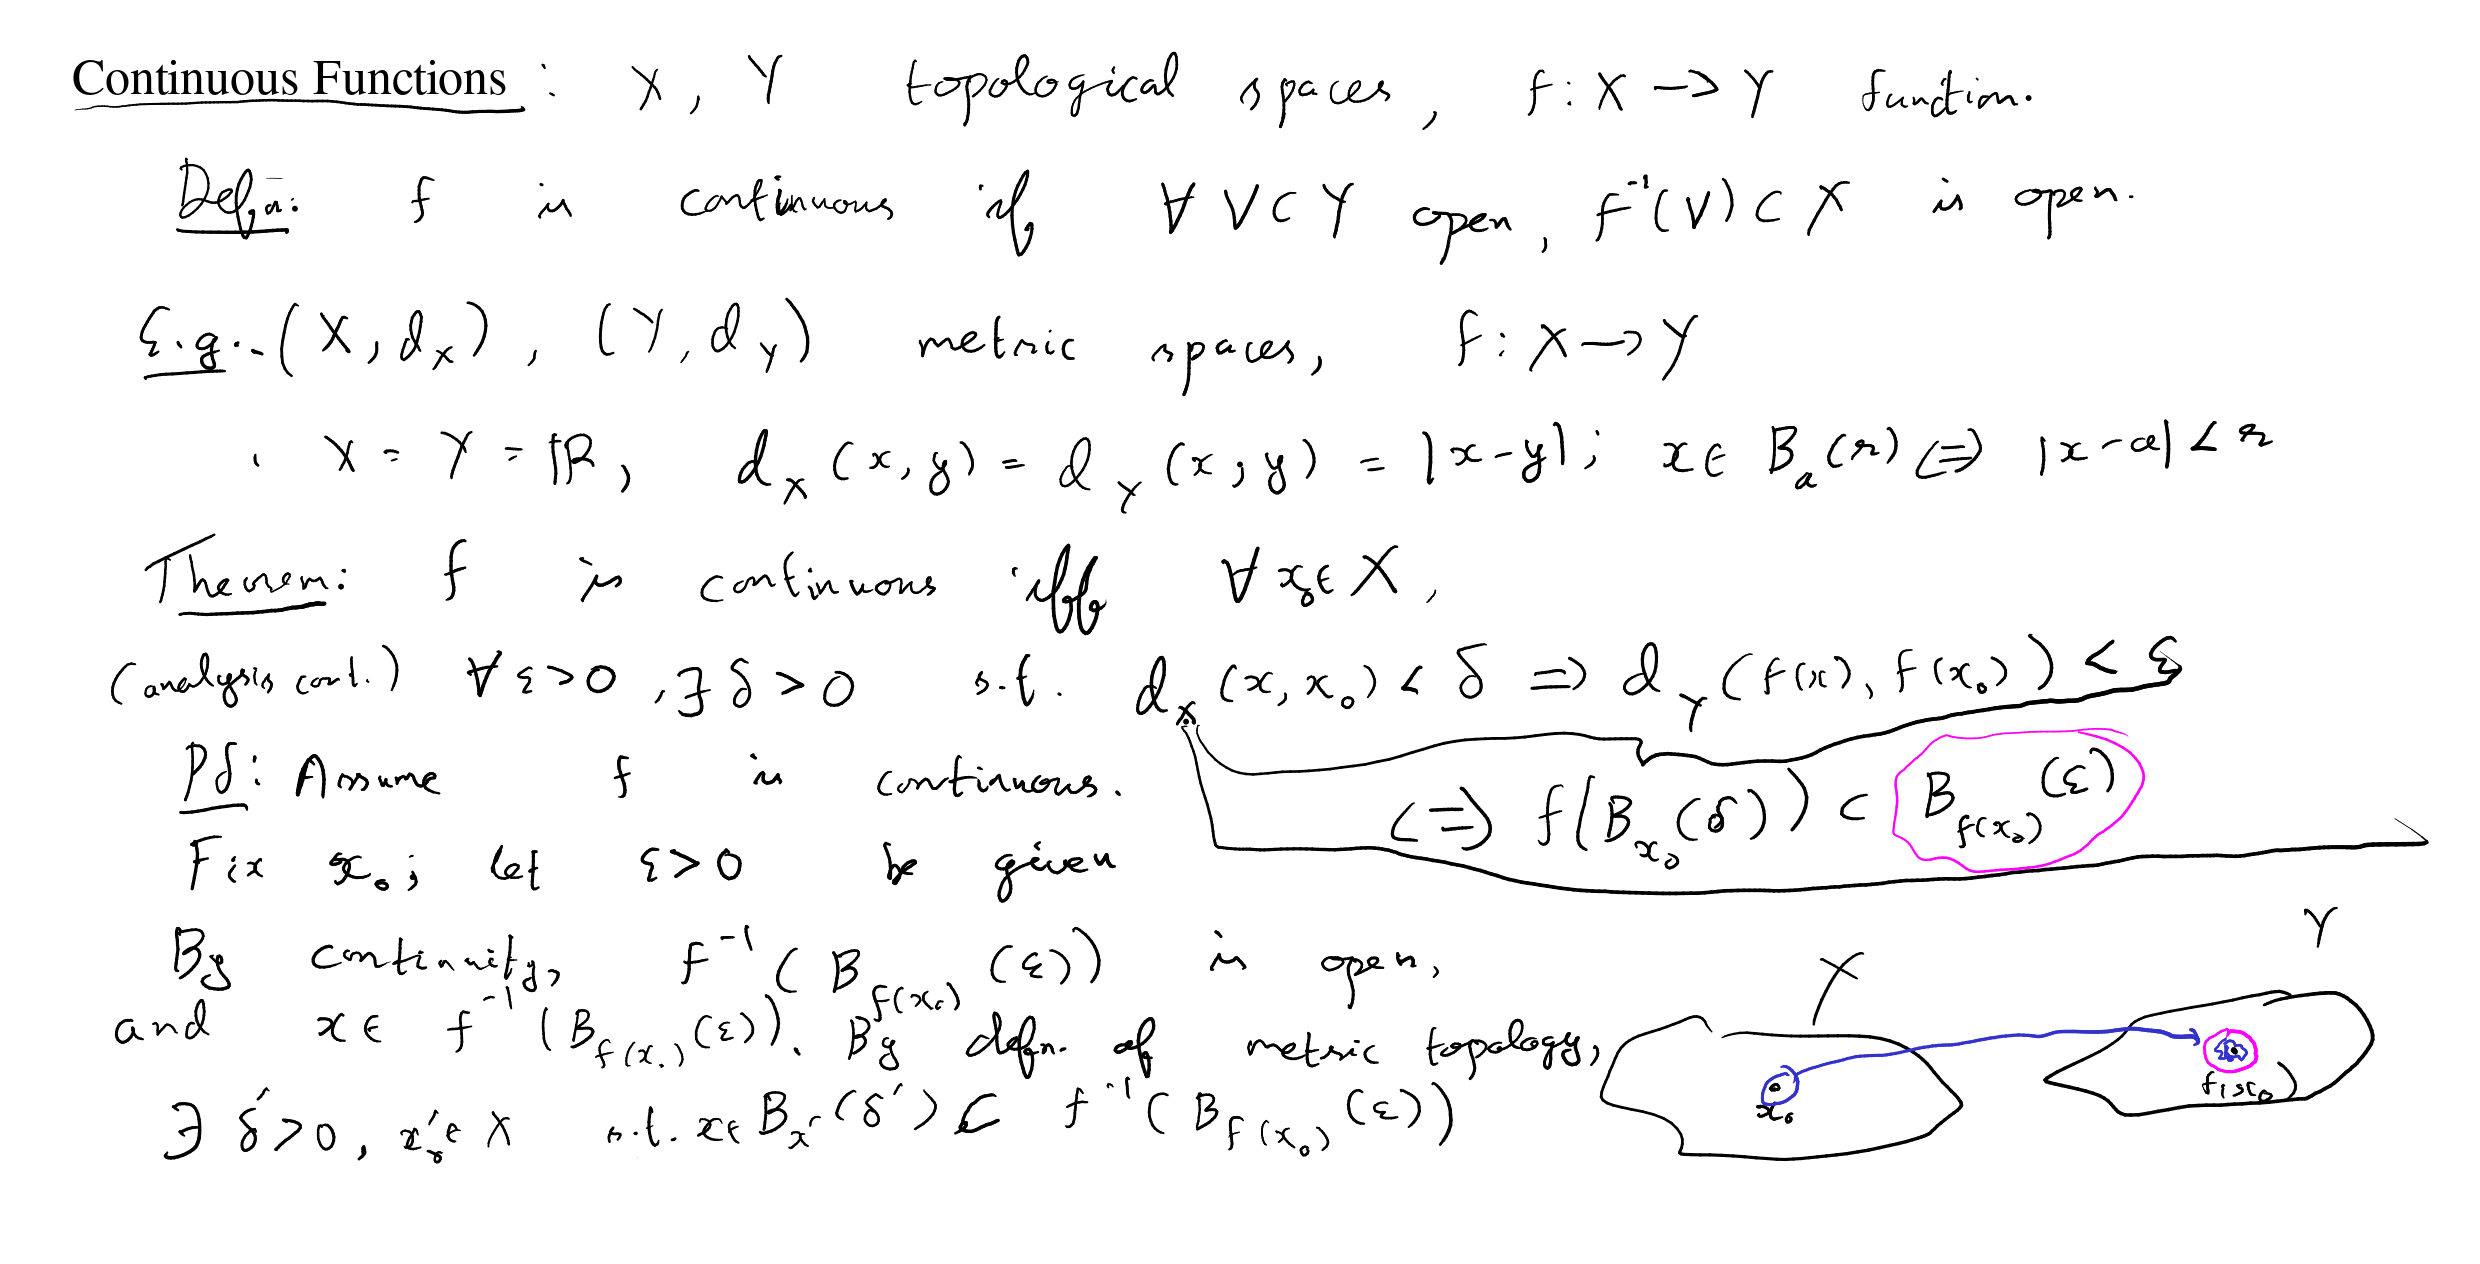 Continuous Functions : X, Y topological spaces, f: X → Y function.
Defn: f is continuous if ∀ V ⊂ Y open, f⁻¹(V) ⊂ X is open.
E.g.. (X, d_X), (Y, d_Y) metric spaces, f: X → Y
· X = Y = ℝ, d_X(x, y) = d_Y(x, y) = |x-y|; x ∈ B_a(r) ⇔ |x-a| < r
Theorem: f is continuous iff ∀ x₀ ∈ X,
(analysis cont.) ∀ ε>0, ∃ δ>0 s.t. d_X(x, x₀) < δ ⇒ d_Y(f(x), f(x₀)) < ε
Pf: Assume f is continuous.
⇔ f(B_{x₀}(δ)) ⊂ B_{f(x₀)}(ε)
Fix x₀; let ε>0 be given
By continuity, f⁻¹(B_{f(x₀)}(ε)) is open,
and x ∈ f⁻¹(B_{f(x₀)}(ε)). By defn. of metric topology,
∃ δ'>0, x' ∈ X s.t. x ∈ B_{x'}(δ') ⊂ f⁻¹(B_{f(x₀)}(ε))
X
Y
x₀
f(x₀)